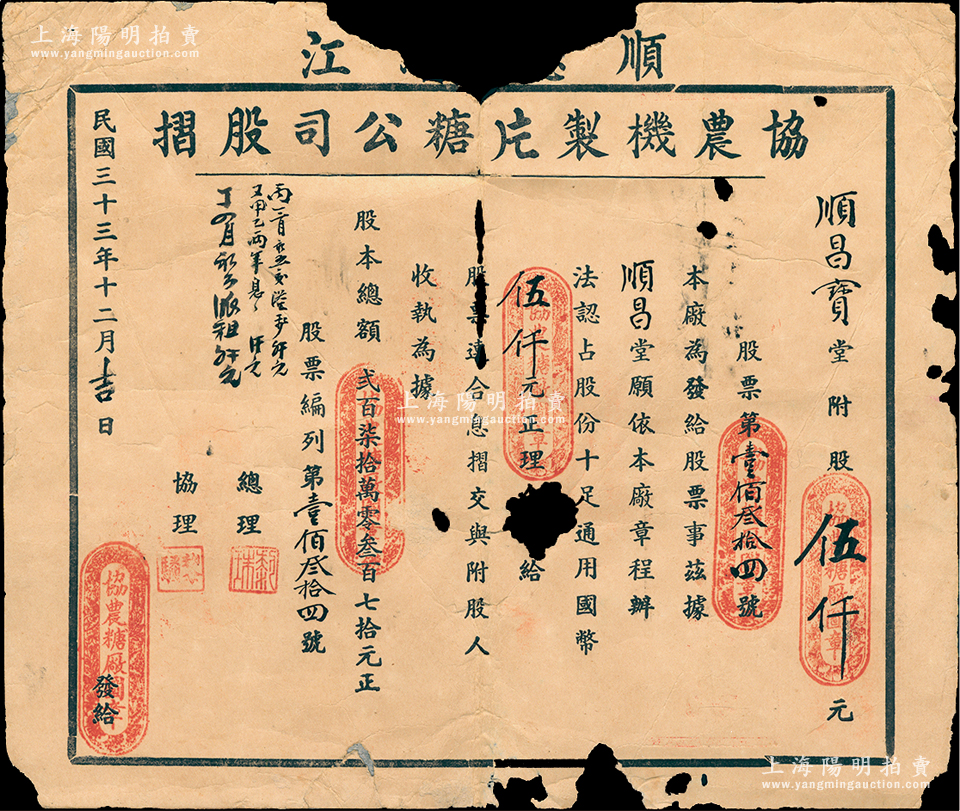 上海陽明拍賣
www.yangmingauction.com
上海陽明拍賣
www.yangmingauction.com
順 江
協農機製片糖公司股摺
順昌寶堂附股伍仟元
股票第壹佰叁拾四號
本廠為發給股票事茲據
順昌堂願依本廠章程辦
法認占股份十足通用國幣
伍仟元正理 給
股票連合息摺交與附股人
收執為據
股本總額弍百柒拾萬零叁百七拾元正
股票編列第壹佰叁拾四號
總理
協理
民國三十三年十二月吉日
協農糖廠圖章
發給
上海陽明拍賣
www.yangmingauction.com
上海陽明拍賣
www.yangmingauction.com